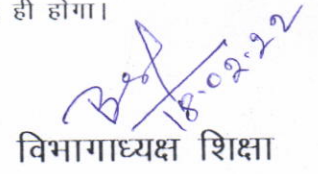 ही होगा।
18.02.22
विभागाध्यक्ष शिक्षा